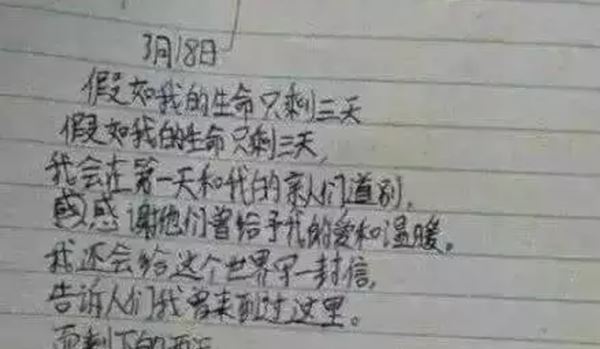 3月18日
假如我的生命只剩三天
假如我的生命只剩三天,
我会在第一天和我的亲人们道别,
感感谢他们曾给予我的爱和温暖。
我还会给这个世界写一封信,
告诉人们我曾来到过这里。
而剩下的两天